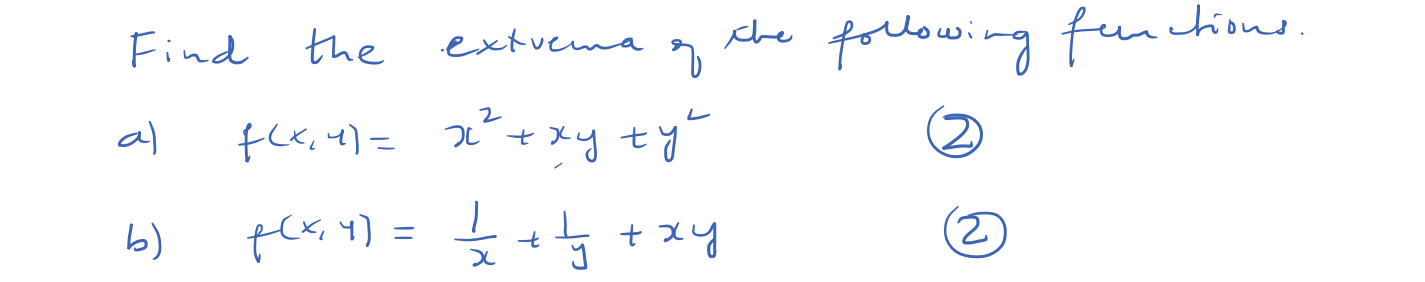 Find the extrema of the following functions.
a) f(x,y) = x² + xy + y² ②
b) f(x,y) = 1/x + 1/y + xy ②